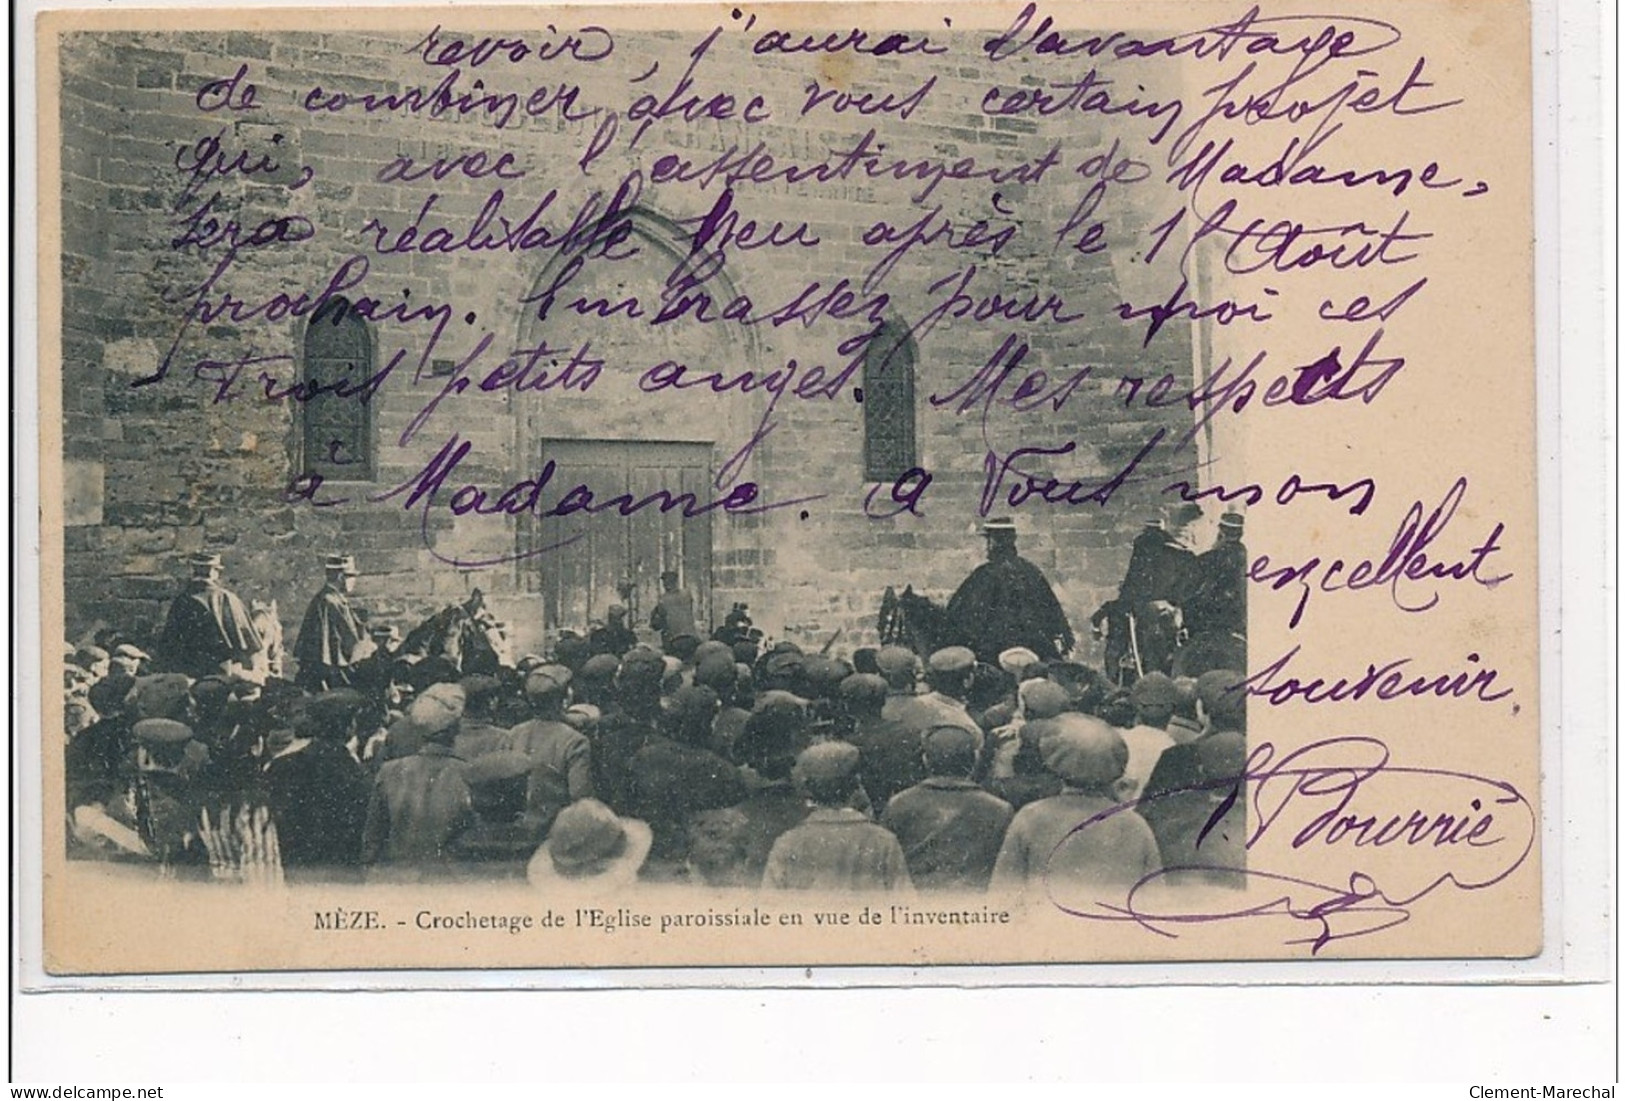 revoir, j'aurai l'avantage
de combiner avec vous certain projet
qui, avec l'assentiment de Madame,
sera réalisable peu après le 15 Août
prochain. Embrassez pour moi ces
trois petits anges. Mes respects
à Madame. A Vous mon
excellent
souvenir.
Bourrié
MÈZE. - Crochetage de l'Eglise paroissiale en vue de l'inventaire
delcampe.net
Clement-Marechal